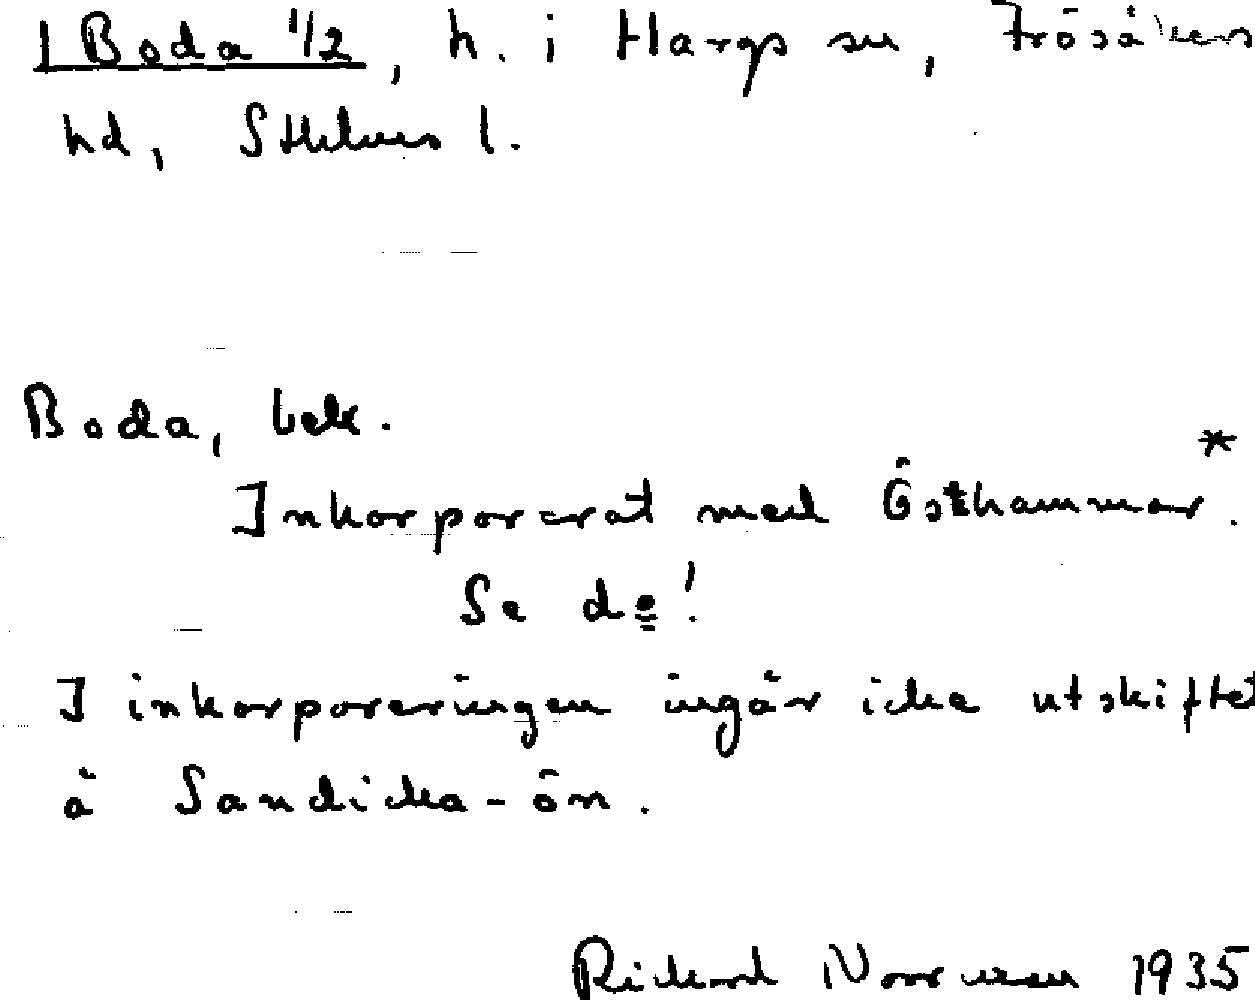 Boda 1/2, h. i Hargs sn, Frösåkers
hd, Sthlms l.
Boda, bek.
Inkorporerat med Östhammar. *
Se do!
I inkorporeringen ingår icke utskiftet
å Sandicka-ön.
Rickard Norrman 1935